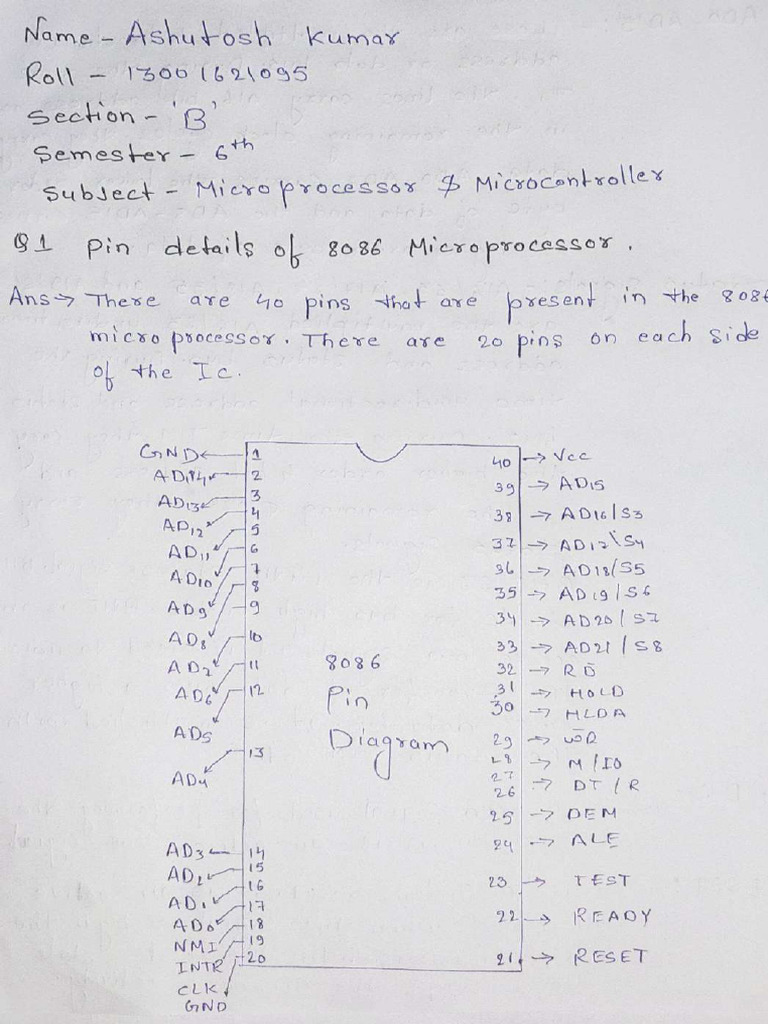 Name - Ashutosh Kumar
Roll - 13001621095
Section - 'B'
Semester - 6th
Subject - Microprocessor & Microcontroller
Q1 Pin details of 8086 Microprocessor.
Ans → There are 40 pins that are present in the 8086
microprocessor. There are 20 pins on each side
of the Ic.
GND ← 1
AD14 ← 2
AD13 ← 3
AD12 ← 4
AD11 ← 5
AD10 ← 6
AD9 ← 7
AD8 ← 8
AD7 ← 9
AD6 ← 10
AD5 ← 11
AD4 ← 12
13
AD3 ← 14
AD2 ← 15
AD1 ← 16
AD0 ← 17
NMI ← 18
INTR ← 19
CLK ← 20
GND
8086
Pin
Diagram
40 → Vcc
39 → AD15
38 → AD16/S3
37 → AD17\S4
36 → AD18/S5
35 → AD19/S6
34 → AD20/S7
33 → AD21/S8
32 → RD
31 → HOLD
30 → HLDA
29 → WR
28 → M/IO
27 → DT/R
26
25 → DEM
24 → ALE
23 → TEST
22 → READY
21 → RESET